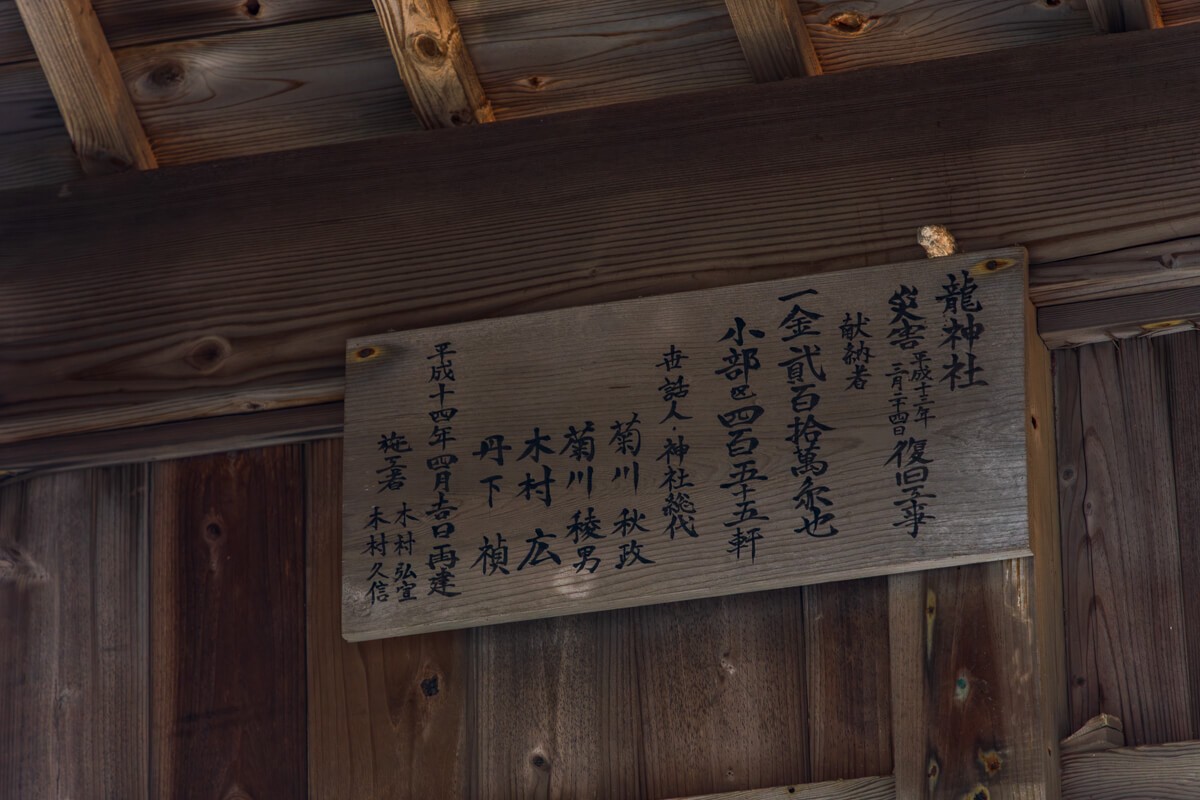 龍神社
災害 平成十三年三月二十四日 復旧工事
献納者
一金貳百拾萬円也
小部区四百五十五軒
世話人・神社総代
菊川秋政
菊川稜男
木村広
丹下禎
平成十四年四月吉日再建
施工者 木村弘宣
木村久信